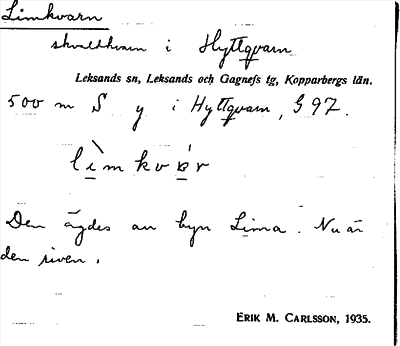 Limkvarn
skvaltkvarn i Hyttqvarn
Leksands sn, Leksands och Gagnefs tg, Kopparbergs län.
500 m S y i Hyttqvarn, S 97.
lìmkvár
Den ägdes av byn Lima. Nu är
den riven.
ERIK M. CARLSSON, 1935.